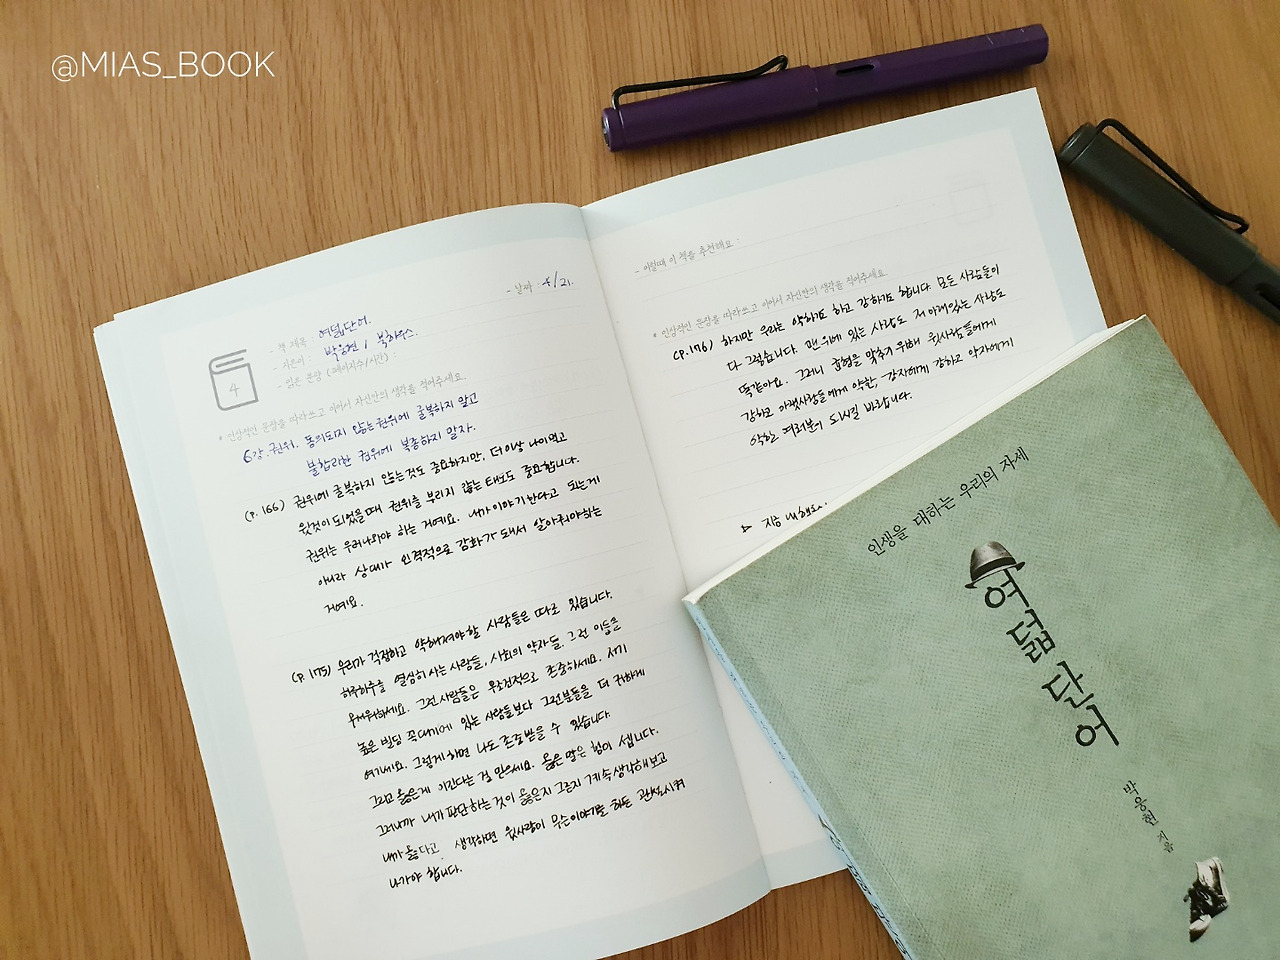 @MIAS_BOOK
- 날짜 : 4/21.
4
- 책 제목 : 여덟단어.
- 지은이 : 박웅현, 북하우스.
- 읽은 분량 (페이지수/시간) :
* 인상적인 문장을 따라쓰고 이어서 자신만의 생각을 적어주세요.
6강. 권위. 동의되지 않는 권위에 굴복하지 말고
불합리한 권위에 복종하지 말자.
(p.166) 권위에 굴복하지 않는것도 중요하지만, 더이상 나이먹고
윗것이 되었을때 권위를 부리지 않는 태도도 중요합니다.
권위는 우러나와야 하는 거예요. 내가 이야기한다고 되는게
아니라 상대가 인격적으로 감화가 돼서 알아줘야하는
거예요.
(p.175) 우리가 걱정하고 약해져야할 사람들은 따로 있습니다.
하루하루를 열심히 사는 사람들, 사회의 약자들, 그런 이들을
무서워하세요. 그런사람들은 무조건적으로 존중하세요. 저기
높은 빌딩 꼭대기에 있는 사람들보다 그런분들을 더 귀하게
여기세요. 그렇게 하면 나도 존중받을 수 있습니다.
그리고 옳은게 이긴다는 걸 믿으세요. 옳은 말은 힘이 셉니다.
그러니까 내가 판단하는 것이 옳은지 그른지 계속 생각해보고
내가 옳다고 생각하면 윗사람이 무슨이야기를 하든 관철시켜
나가야 합니다.
- 이럴때 이 책을 추천해요 :
* 인상적인 문장을 따라쓰고 이어서 자신만의 생각을 적어주세요.
(p.176) 하지만 우리는 약하기도 하고 강하기도 합니다. 모든 사람들이
다 그렇습니다. 맨위에 있는 사람도 저 아래있는 사람도
똑같아요. 그러니 균형을 맞추기 위해 윗사람들에게
강하고 아랫사람들에게 약한, 강자에게 강하고 약자에게
약한 여러분이 되시길 바랍니다.
▷ 지금 내
인생을 대하는 우리의 자세
여덟 단어
박웅현 지음